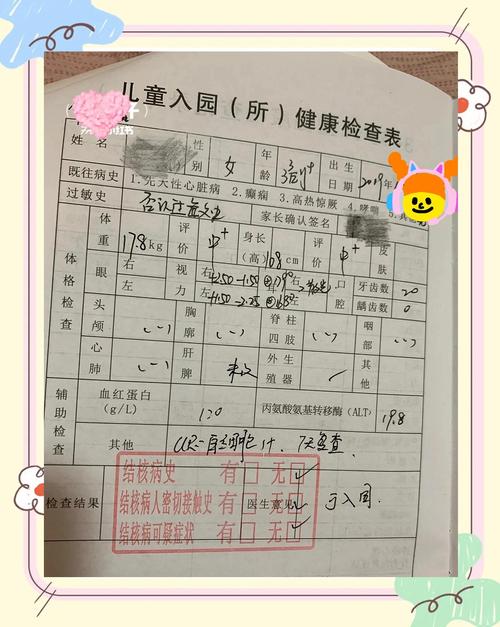 儿童入园（所）健康检查表
姓名 性别 女 年龄 3岁 出生日期 2019
既往病史 1.先天性心脏病 2.癫痫 3.高热惊厥 4.哮喘 5.其他
过敏史 否认过敏史 家长确认签名
体格检查 体重 17.8kg 评价 中+ 身长（高）108cm 评价 中+ 皮肤
眼 右 左 视力 右 +2.50 -1.50 左 +1.50 -2.25 耳 右 左 口腔 牙齿数 20 龋齿数 0
头颅 (-) 胸廓 (-) 脊柱四肢 (-) 咽部 (-)
心肺 (-) 肝脾 未及 外生殖器 / 其他
辅助检查 血红蛋白(g/L) 120 丙氨酸氨基转移酶（ALT） 19.8
其他
检查结果 医生意见 入园.
结核病史 有□ 无☑
结核病人密切接触史 有□ 无☑
结核病可疑症状 有□ 无☑